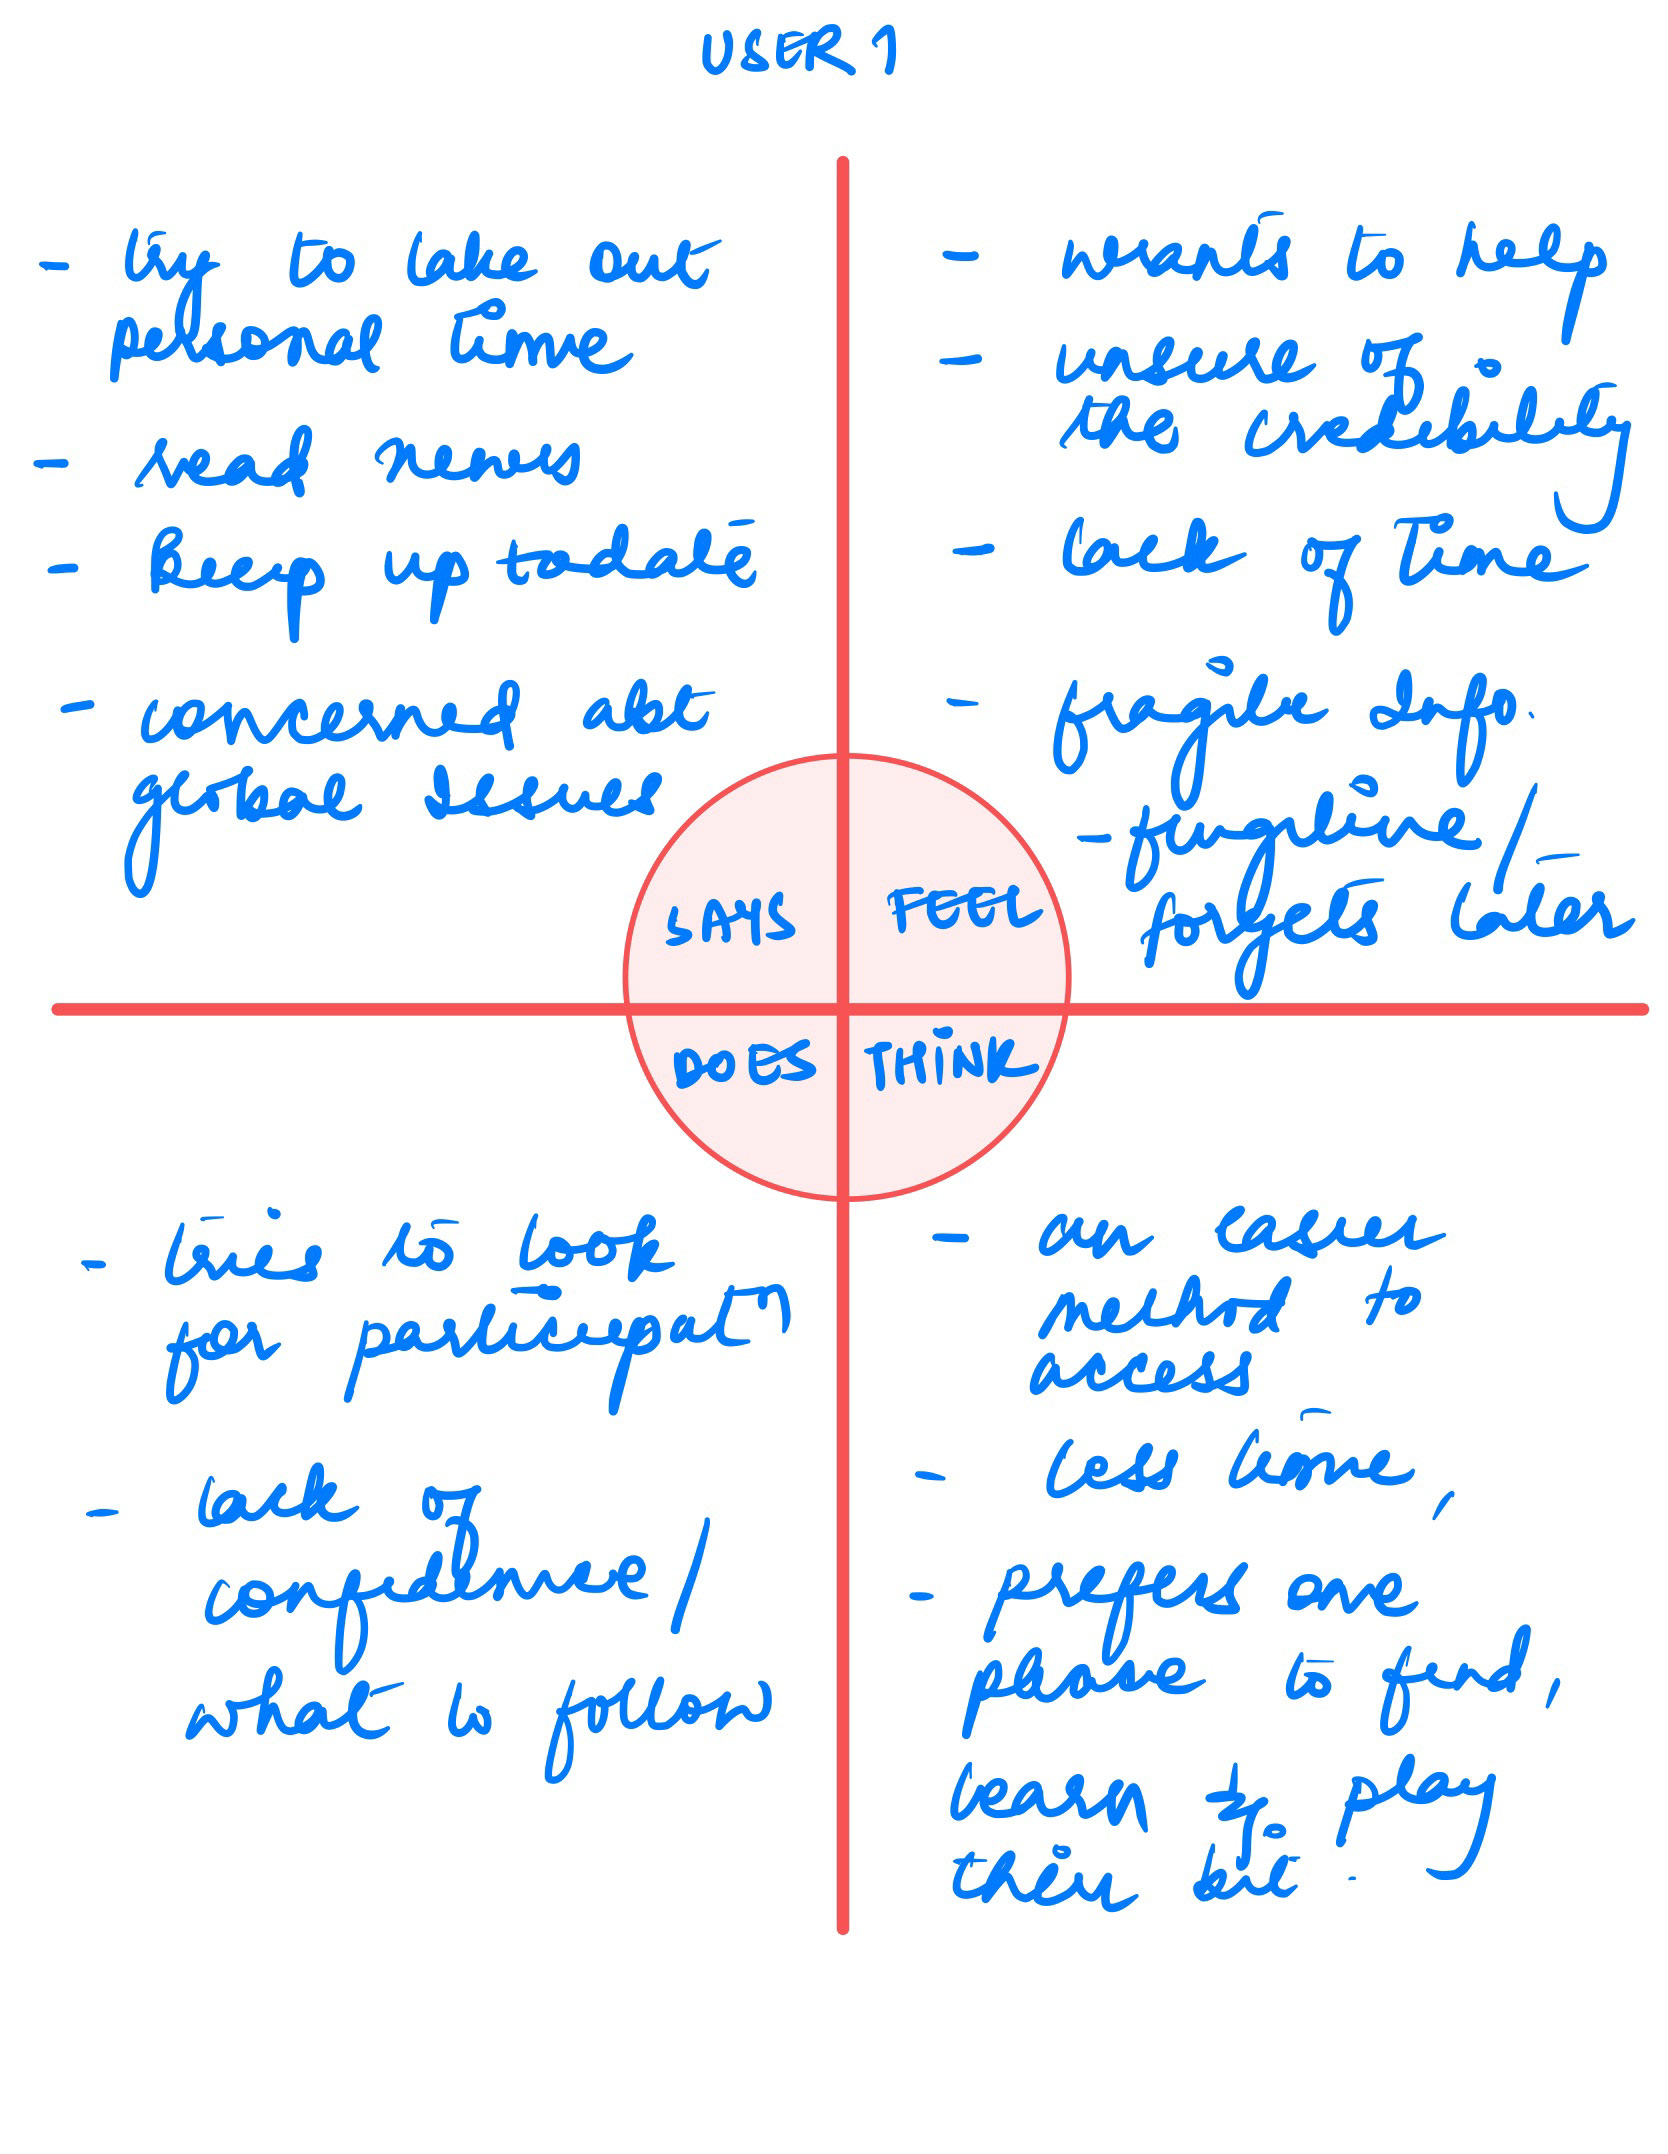 USER 1
- try to take out
personal time
- read news
- keep up todate
- concerned abt
global issues
- wants to help
- unsure of
the credibility
- lack of time
- fragile info.
- fungible/
forgets later
SAYS FEEL
DOES THINK
- tries to look
for participatn
- lack of
confidence/
what to follow
- an easier
method to
access
- less time,
- prefers one
phone to find,
learn & play
their bit.